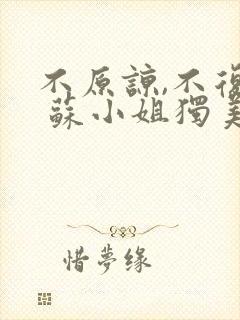 不原諒,不復
蘇小姐獨美
惜夢缘